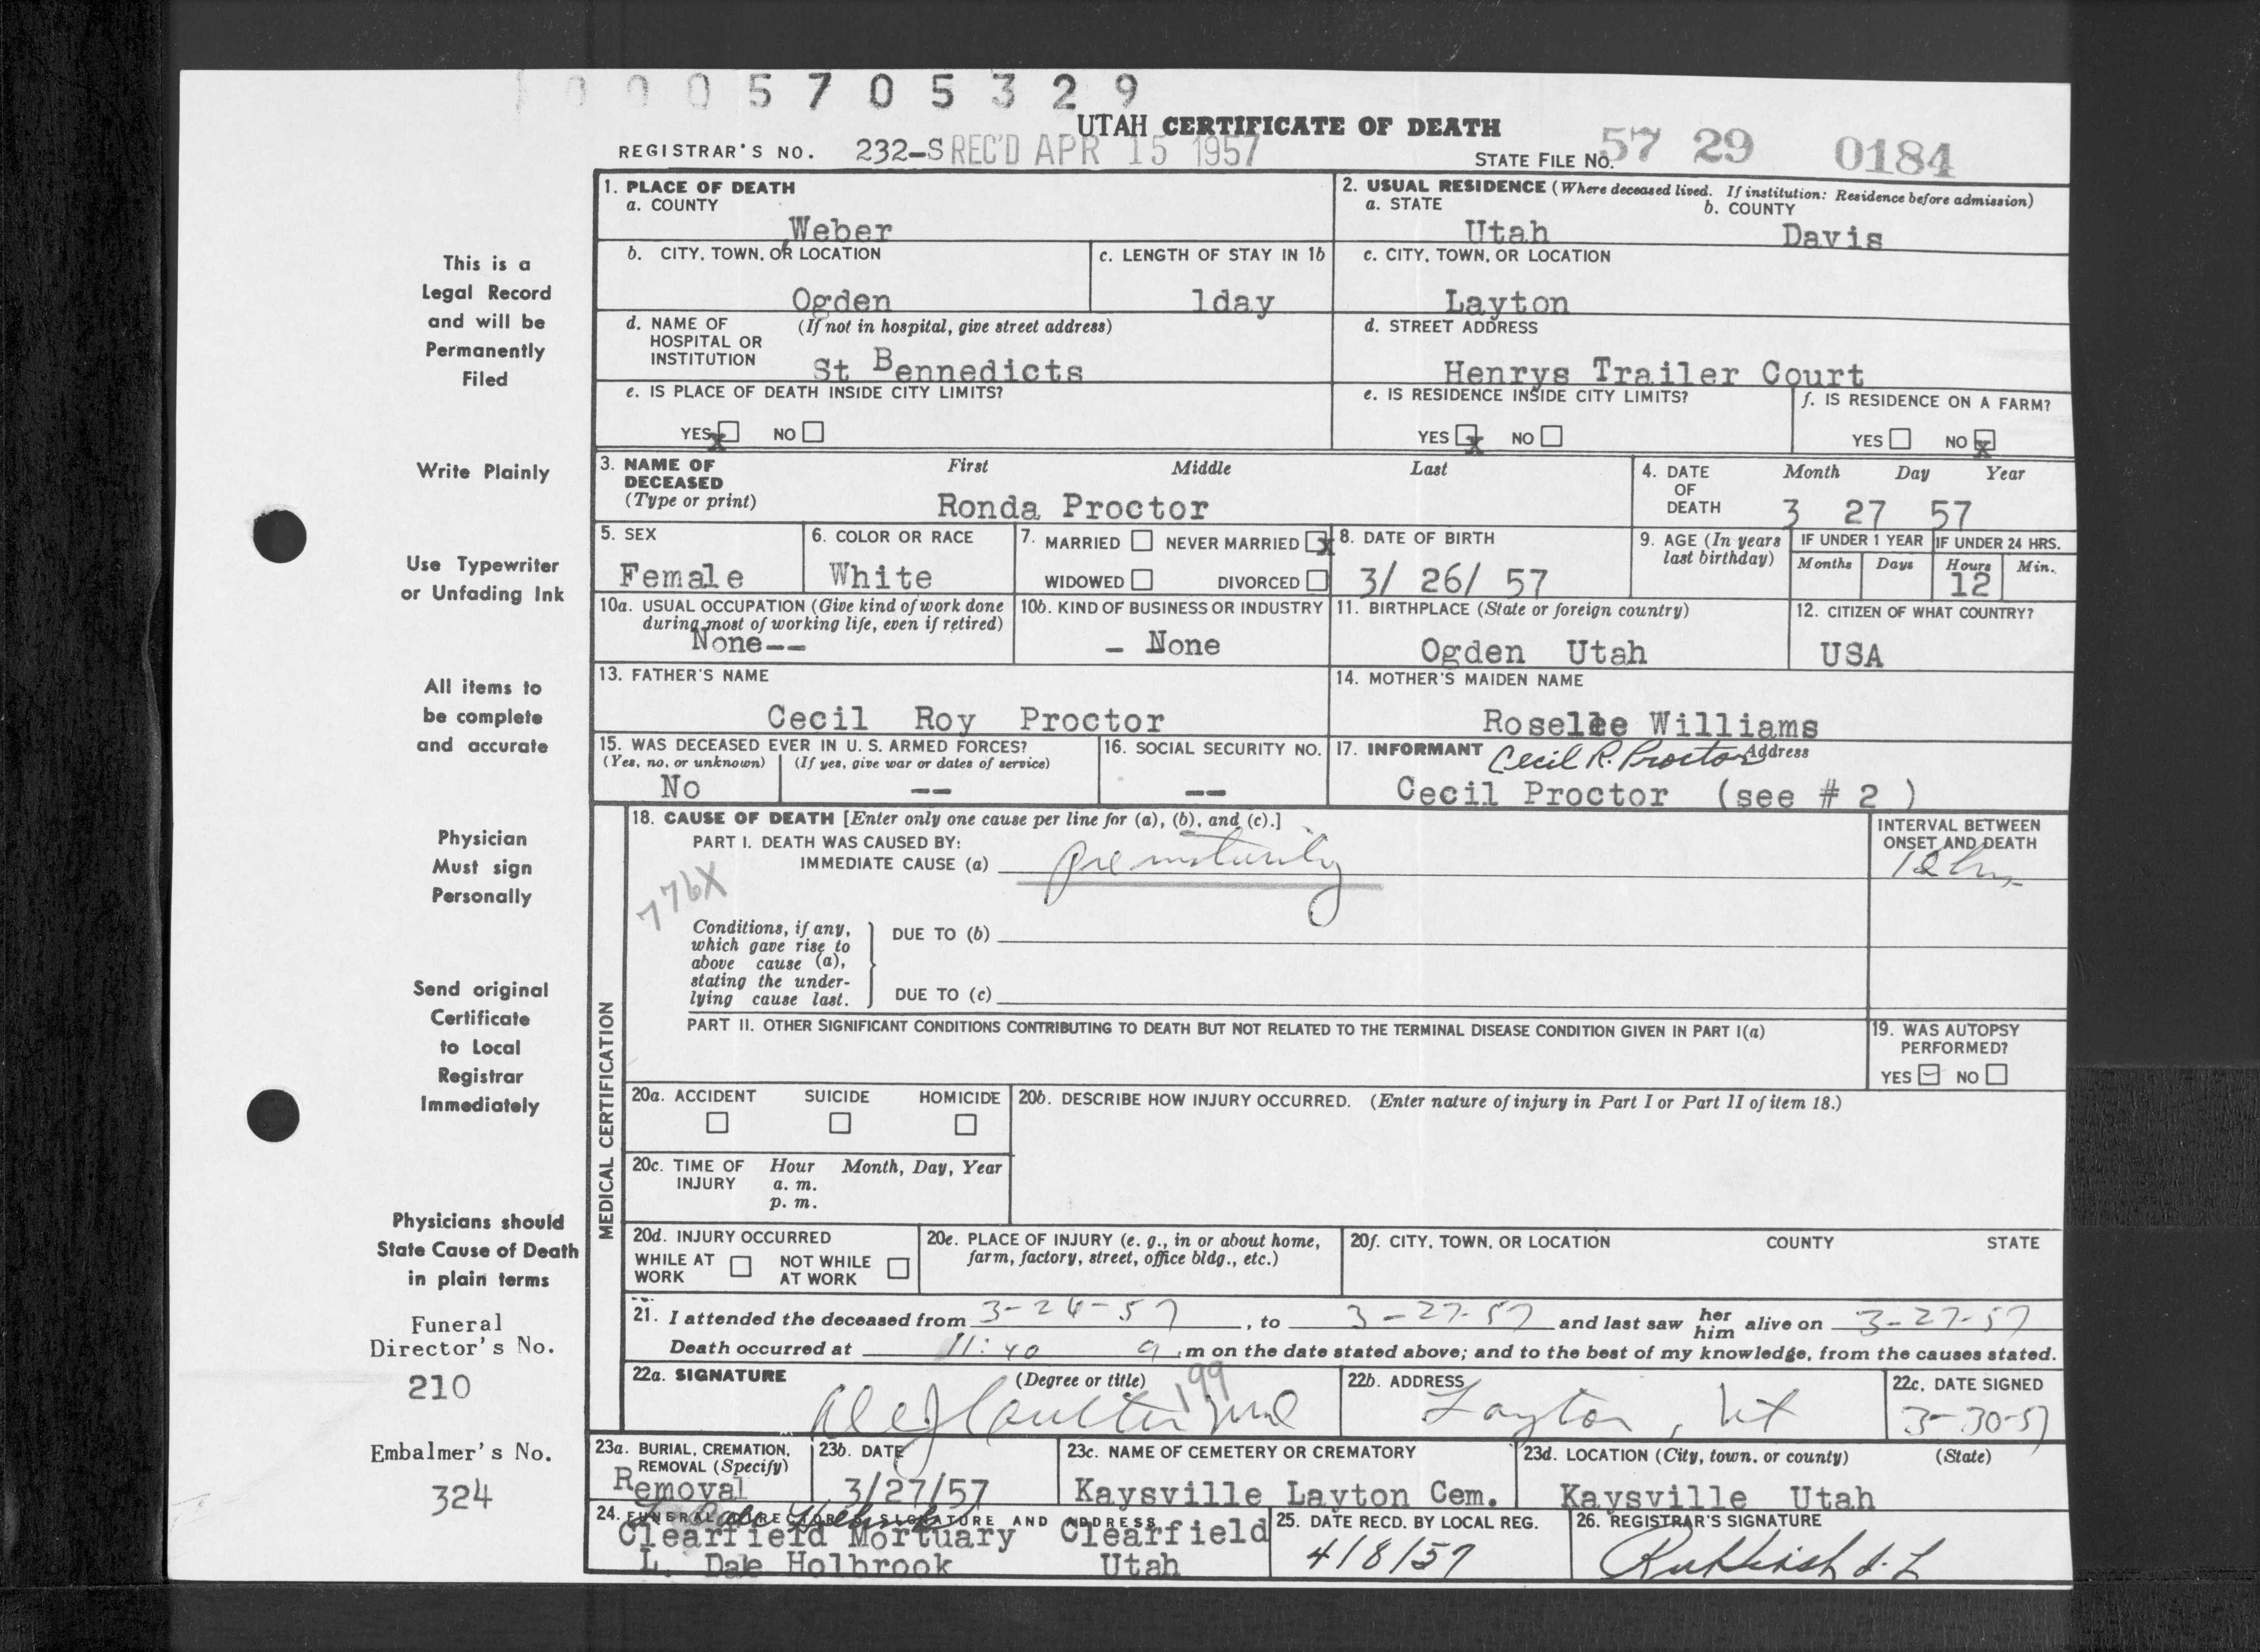 0005705329
UTAH CERTIFICATE OF DEATH
REGISTRAR'S NO. 232-S REC'D APR 15 1957 STATE FILE NO. 57 29 0184
This is a
Legal Record
and will be
Permanently
Filed
Write Plainly
Use Typewriter
or Unfading Ink
All items to
be complete
and accurate
Physician
Must sign
Personally
Send original
Certificate
to Local
Registrar
Immediately
Physicians should
State Cause of Death
in plain terms
Funeral
Director's No.
210
Embalmer's No.
324
1. PLACE OF DEATH
a. COUNTY
Weber
2. USUAL RESIDENCE (Where deceased lived. If institution: Residence before admission)
a. STATE b. COUNTY
Utah Davis
b. CITY, TOWN, OR LOCATION c. LENGTH OF STAY IN 1b
Ogden 1day
c. CITY, TOWN, OR LOCATION
Layton
d. NAME OF (If not in hospital, give street address)
HOSPITAL OR
INSTITUTION St Bennedicts
d. STREET ADDRESS
Henrys Trailer Court
e. IS PLACE OF DEATH INSIDE CITY LIMITS?
YES x NO
e. IS RESIDENCE INSIDE CITY LIMITS?
YES x NO
f. IS RESIDENCE ON A FARM?
YES NO x
3. NAME OF First Middle Last
DECEASED
(Type or print) Ronda Proctor
4. DATE Month Day Year
OF
DEATH 3 27 57
5. SEX
Female
6. COLOR OR RACE
White
7. MARRIED NEVER MARRIED x
WIDOWED DIVORCED
8. DATE OF BIRTH
3/ 26/ 57
9. AGE (In years
last birthday)
IF UNDER 1 YEAR IF UNDER 24 HRS.
Months Days Hours Min.
12
10a. USUAL OCCUPATION (Give kind of work done
during most of working life, even if retired)
None--
10b. KIND OF BUSINESS OR INDUSTRY
- None
11. BIRTHPLACE (State or foreign country)
Ogden Utah
12. CITIZEN OF WHAT COUNTRY?
USA
13. FATHER'S NAME
Cecil Roy Proctor
14. MOTHER'S MAIDEN NAME
Williams
15. WAS DECEASED EVER IN U. S. ARMED FORCES?
(Yes, no, or unknown) (If yes, give war or dates of service)
No --
16. SOCIAL SECURITY NO.
--
17. INFORMANT Cecil R. Proctor Address
Cecil Proctor (see # 2 )
MEDICAL CERTIFICATION
18. CAUSE OF DEATH [Enter only one cause per line for (a), (b), and (c).]
PART I. DEATH WAS CAUSED BY:
IMMEDIATE CAUSE (a) prematurity
INTERVAL BETWEEN
ONSET AND DEATH
12 hrs
776X
Conditions, if any,
which gave rise to
above cause (a),
stating the under-
lying cause last.
DUE TO (b)
DUE TO (c)
PART II. OTHER SIGNIFICANT CONDITIONS CONTRIBUTING TO DEATH BUT NOT RELATED TO THE TERMINAL DISEASE CONDITION GIVEN IN PART I(a)
19. WAS AUTOPSY
PERFORMED?
YES NO
20a. ACCIDENT SUICIDE HOMICIDE
20b. DESCRIBE HOW INJURY OCCURRED. (Enter nature of injury in Part I or Part II of item 18.)
20c. TIME OF Hour Month, Day, Year
INJURY a. m.
p. m.
20d. INJURY OCCURRED
WHILE AT NOT WHILE
WORK AT WORK
20e. PLACE OF INJURY (e. g., in or about home,
farm, factory, street, office bldg., etc.)
20f. CITY, TOWN, OR LOCATION COUNTY STATE
21. I attended the deceased from 3-26-57, to 3-27-57 and last saw her him alive on 3-27-57
Death occurred at 11:40 a.m on the date stated above; and to the best of my knowledge, from the causes stated.
22a. SIGNATURE (Degree or title)
199
22b. ADDRESS
Layton, Ut
22c. DATE SIGNED
3-30-57
23a. BURIAL, CREMATION,
REMOVAL (Specify)
Removal
23b. DATE
3/27/57
23c. NAME OF CEMETERY OR CREMATORY
Kaysville Layton Cem.
23d. LOCATION (City, town, or county) (State)
Kaysville Utah
24. FUNERAL DIRECTOR'S SIGNATURE AND ADDRESS
Clearfield Mortuary Clearfield
L. Dale Holbrook Utah
25. DATE RECD. BY LOCAL REG.
4/8/57
26. REGISTRAR'S SIGNATURE